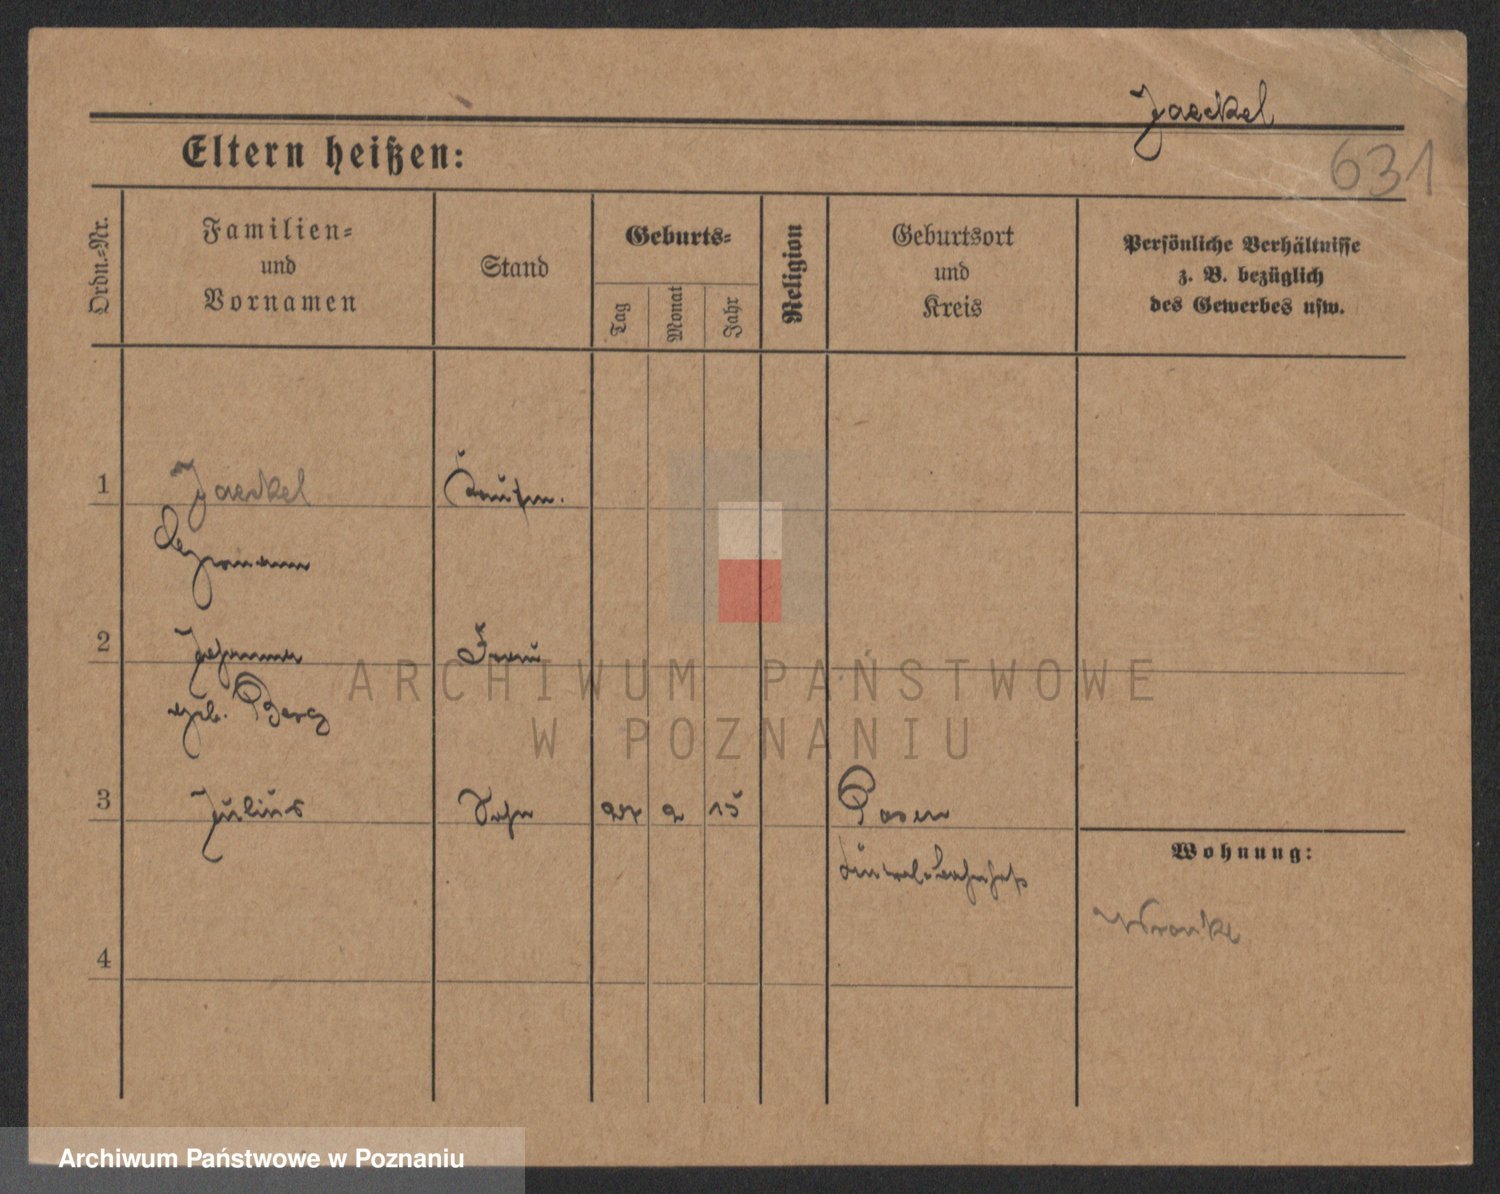 Jaeckel
631
Eltern heißen:
Ordn.-Nr.
Familien-
und
Vornamen
Stand
Geburts-
Tag
Monat
Jahr
Religion
Geburtsort
und
Kreis
Persönliche Verhältnisse
z. B. bezüglich
des Gewerbes usw.
1
Jaeckel
Kaufm.
Hermann
2
Johanna
Frau
geb. Berg
3
Julius
Sohn
2
15
Posen
Wohnung:
Wronke
4
ARCHIWUM PAŃSTWOWE
W POZNANIU
Archiwum Państwowe w Poznaniu